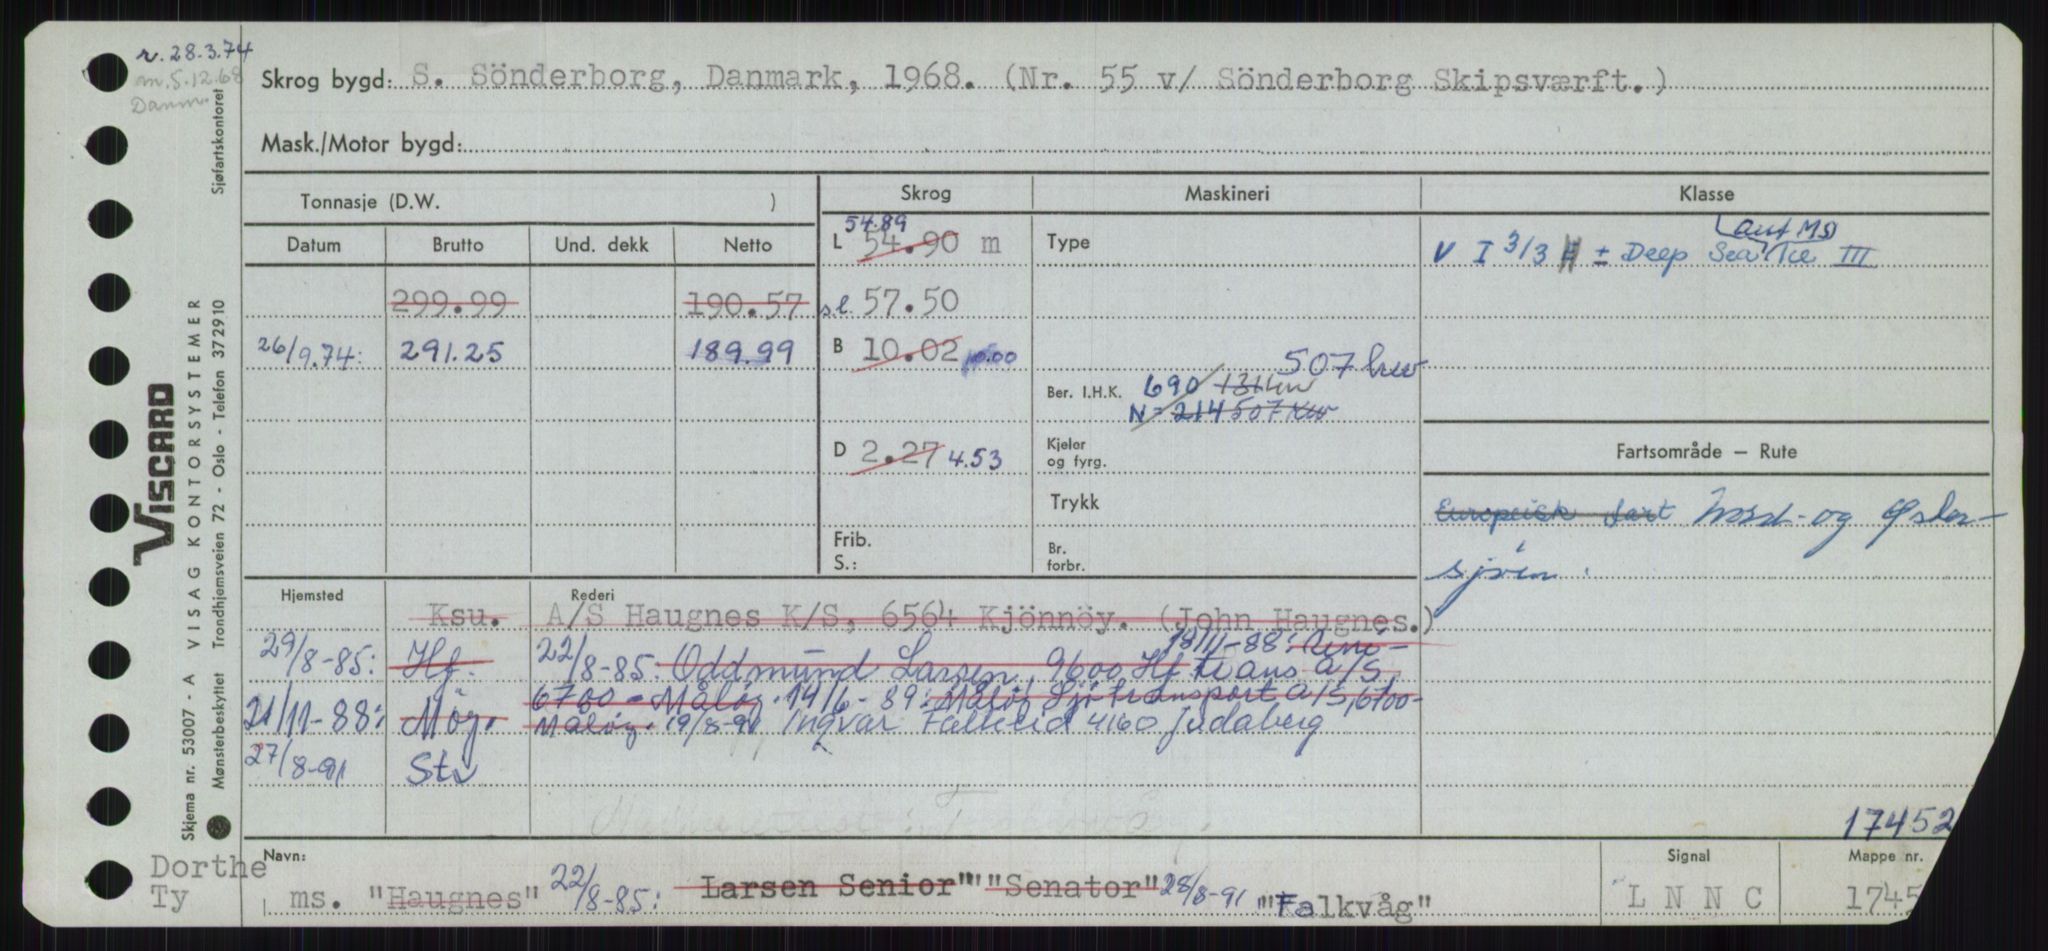 r. 28.3.74
m. 5.12.68
Danm.
Skrog bygd: S. Sönderborg, Danmark, 1968. (Nr. 55 v/ Sönderborg Skipsværft.)
Mask./Motor bygd:
Sjøfartskontoret
VISCARD
VISAG KONTORSYSTEMER
Skjema nr. 53007 - A
Mønsterbeskyttet Trondhjemsveien 72 - Oslo - Telefon 372910
Tonnasje (D.W. )
Skrog Maskineri Klasse
Datum Brutto Und. dekk Netto
54.89
L 54.90 m
Type
aut MS)
V I 3/3 ± Deep Sea Ice III
299.99 190.57
sl. 57.50
26/9.74: 291.25 189.99
B 10.02 10.00
507 kw
Ber. I.H.K. 690 131 kw
N= 214 507 kw
D 2.27 4.53
Kjeler og fyrg.
Fartsområde — Rute
Trykk
Europeisk fart Nord- og Øster-
sjøen.
Frib.
S.:
Br. forbr.
Hjemsted Rederi
Ksu. A/S Haugnes K/S, 6564 Kjönnöy. (John Haugnes.)
18/11-88:
29/8-85: Hf. 22/8-85: Oddmund Larsen, 9600 Hf trans A/S,
6700 - Måløy. 14/6-89: Måløy Sjøtransport A/S, 6700-
21/11-88: Møy. Måløy. 19/8-91 Ingvar Falkeid 4160 Judaberg
27/8-91 Stv
17452
Navn: Signal Mappe nr.
Dorthe
Ty
ms. "Haugnes" 22/8-85: Larsen Senior" "Senator" 28/8-91 "Falkvåg"
L N N C
1745